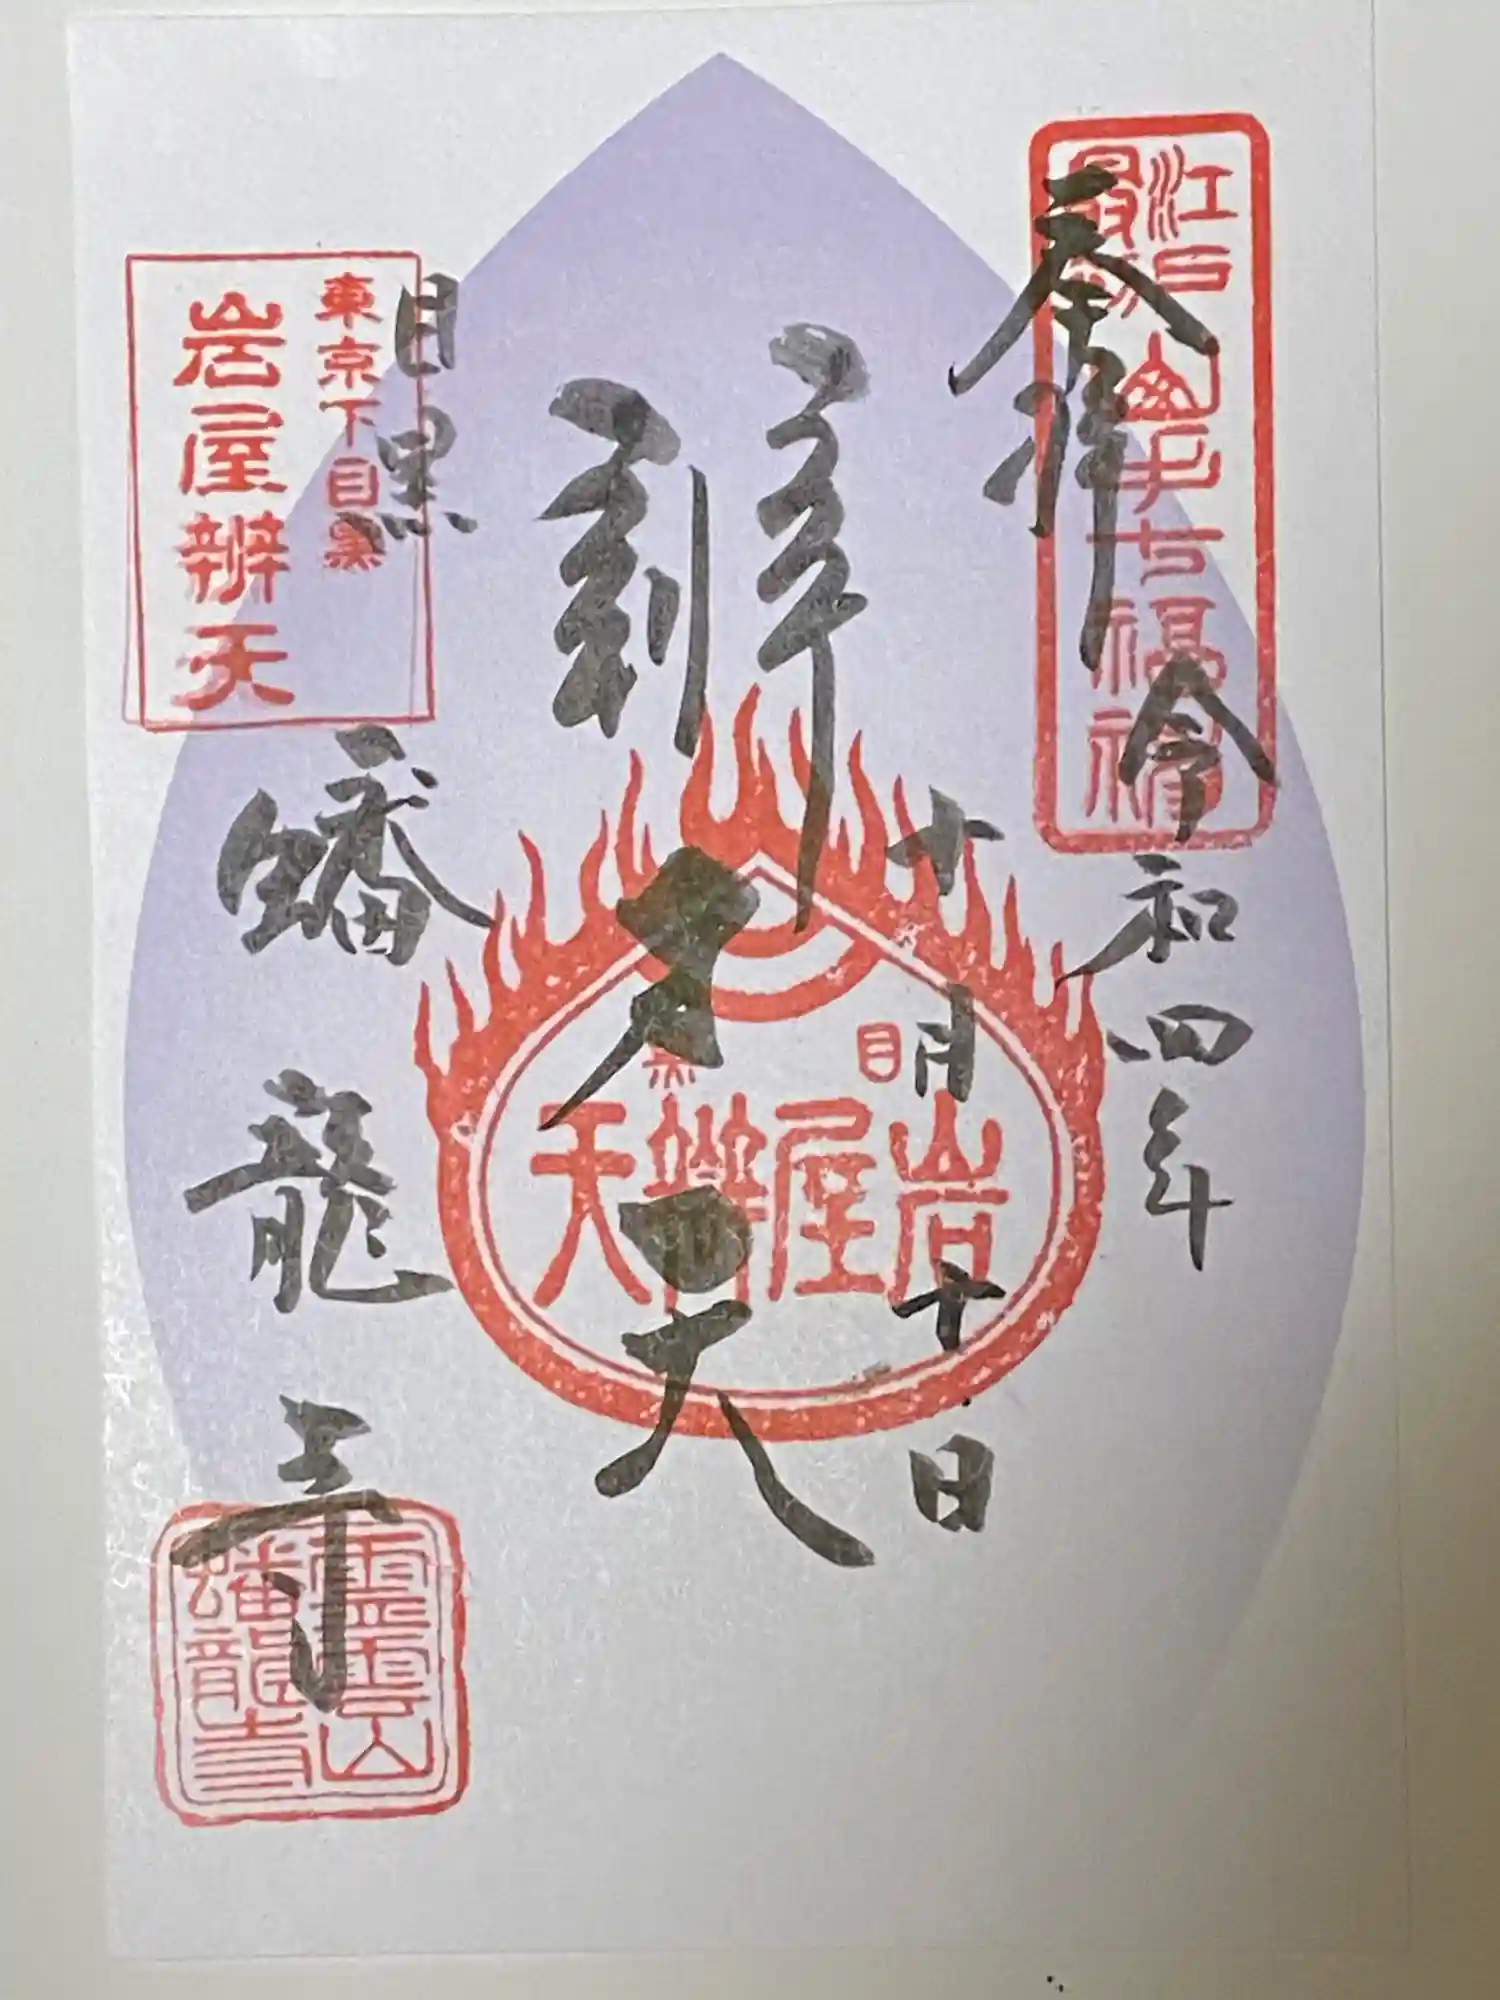 奉拝
令和四年
十月十日
江戸
最初
山手七福神
辨才天
目黒
岩屋辨天
目黒
蟠龍寺
東京下目黒
岩屋辨天
霊雲山
蟠龍寺